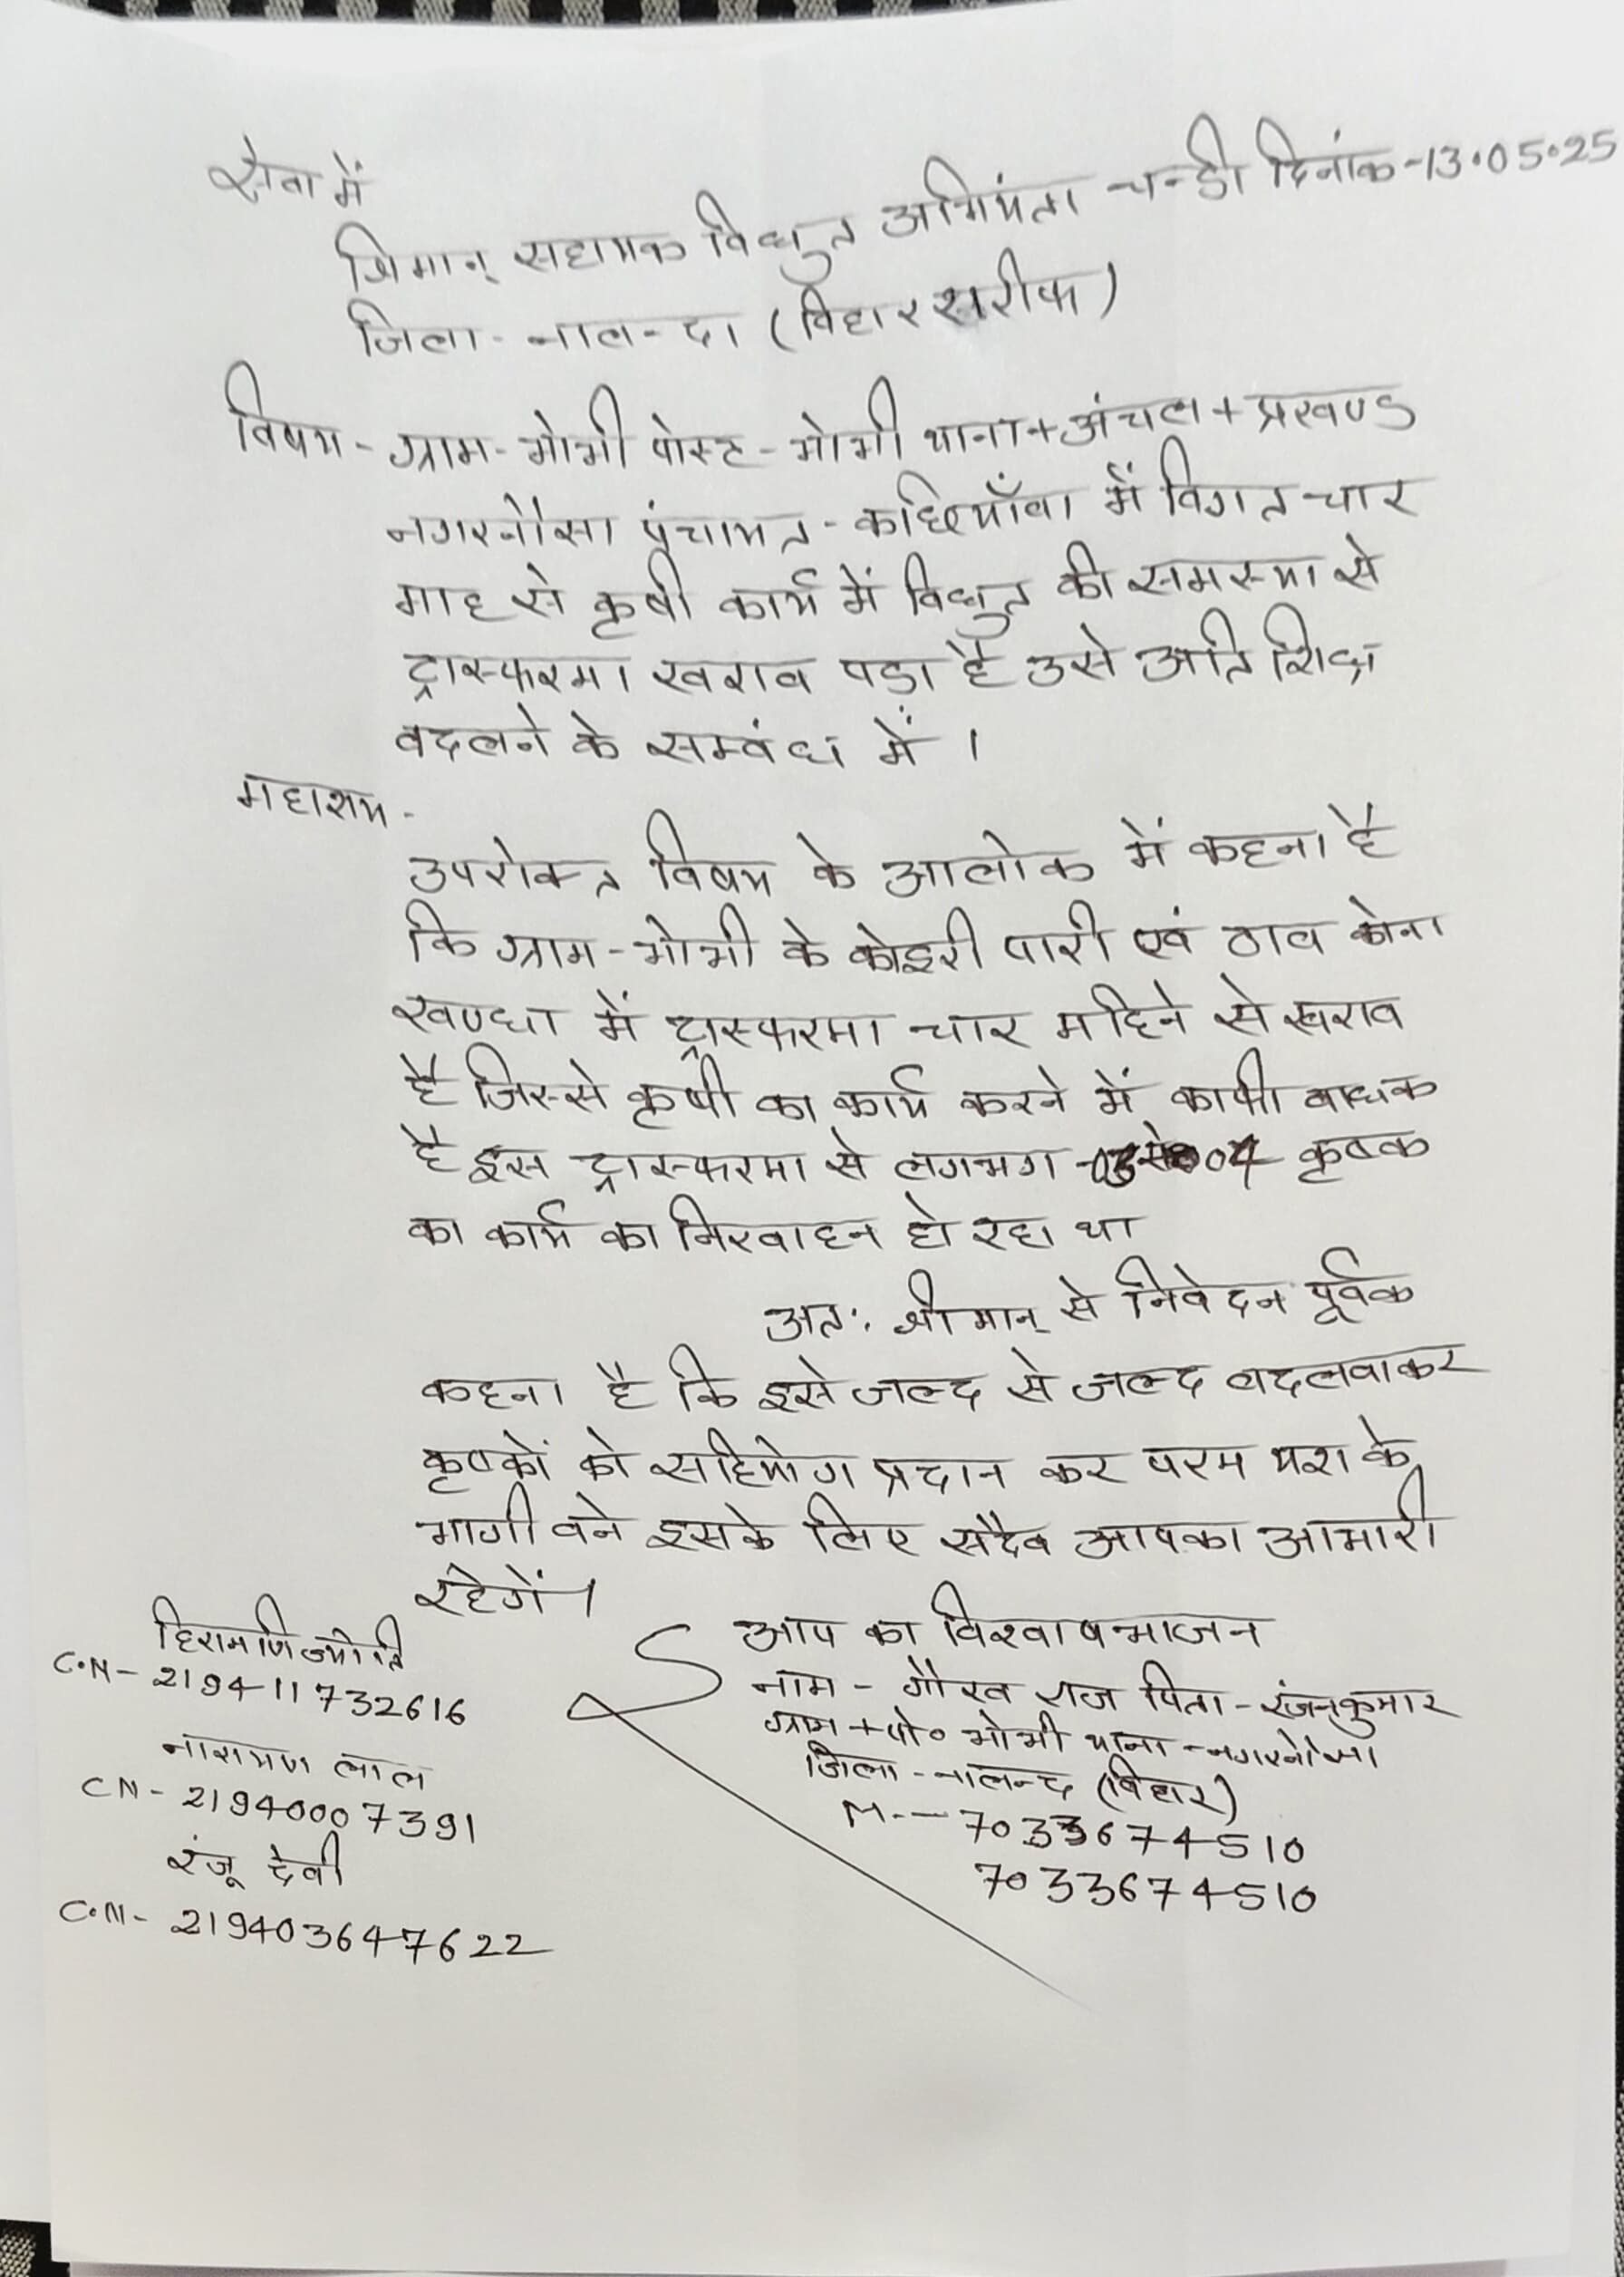 सेवा में
श्रिमान् सहायक विधुत अभियंता चन्डी दिनांक-13.05.25
जिला - नालन्दा (विहार सरीफ)
विषय - ग्राम - मोभी पोस्ट - मोभी थाना + अंचल + प्रखण्ड
नगरनौसा पंचायत - कछियाँवा में विगत चार
माह से कृषी कार्य में विधुत की समस्या से
ट्रास्फरमा खराव पड़ा है उसे अति शिघ्र
वदलने के सम्वंध में ।
महाशय -
उपरोक्त विषय के आलोक में कहना है
कि ग्राम - मोभी के कोइरी पारी एवं ठाव कोना
खण्धा में ट्रास्फरमा चार महिने से खराव
है जिस्से कृषी का कार्य करने में काफी वाधक
है इस ट्रास्फरमा से लगभग कृषक
का कार्य का निरवाहन हो रहा था
अतः श्रीमान् से निवेदन पूर्वक
कहना है कि इसे जल्द से जल्द वदलवाकर
कृषकों को सहियोग प्रदान कर परम यश के
भागी वने इसके लिए सदैव आपका आभारी
रहेगें ।
आप का विश्वाषभाजन
नाम - गौरव राज पिता - रंजन कुमार
ग्राम + पो० मोभी थाना - नगरनौसा
जिला - नालन्द (विहार)
M. - 7033674510
7033674510
हिरामणि ज्योति
C.N - 219411732616
नारायण लाल
CN - 21940007391
रंजू देवी
C.N - 219403647622